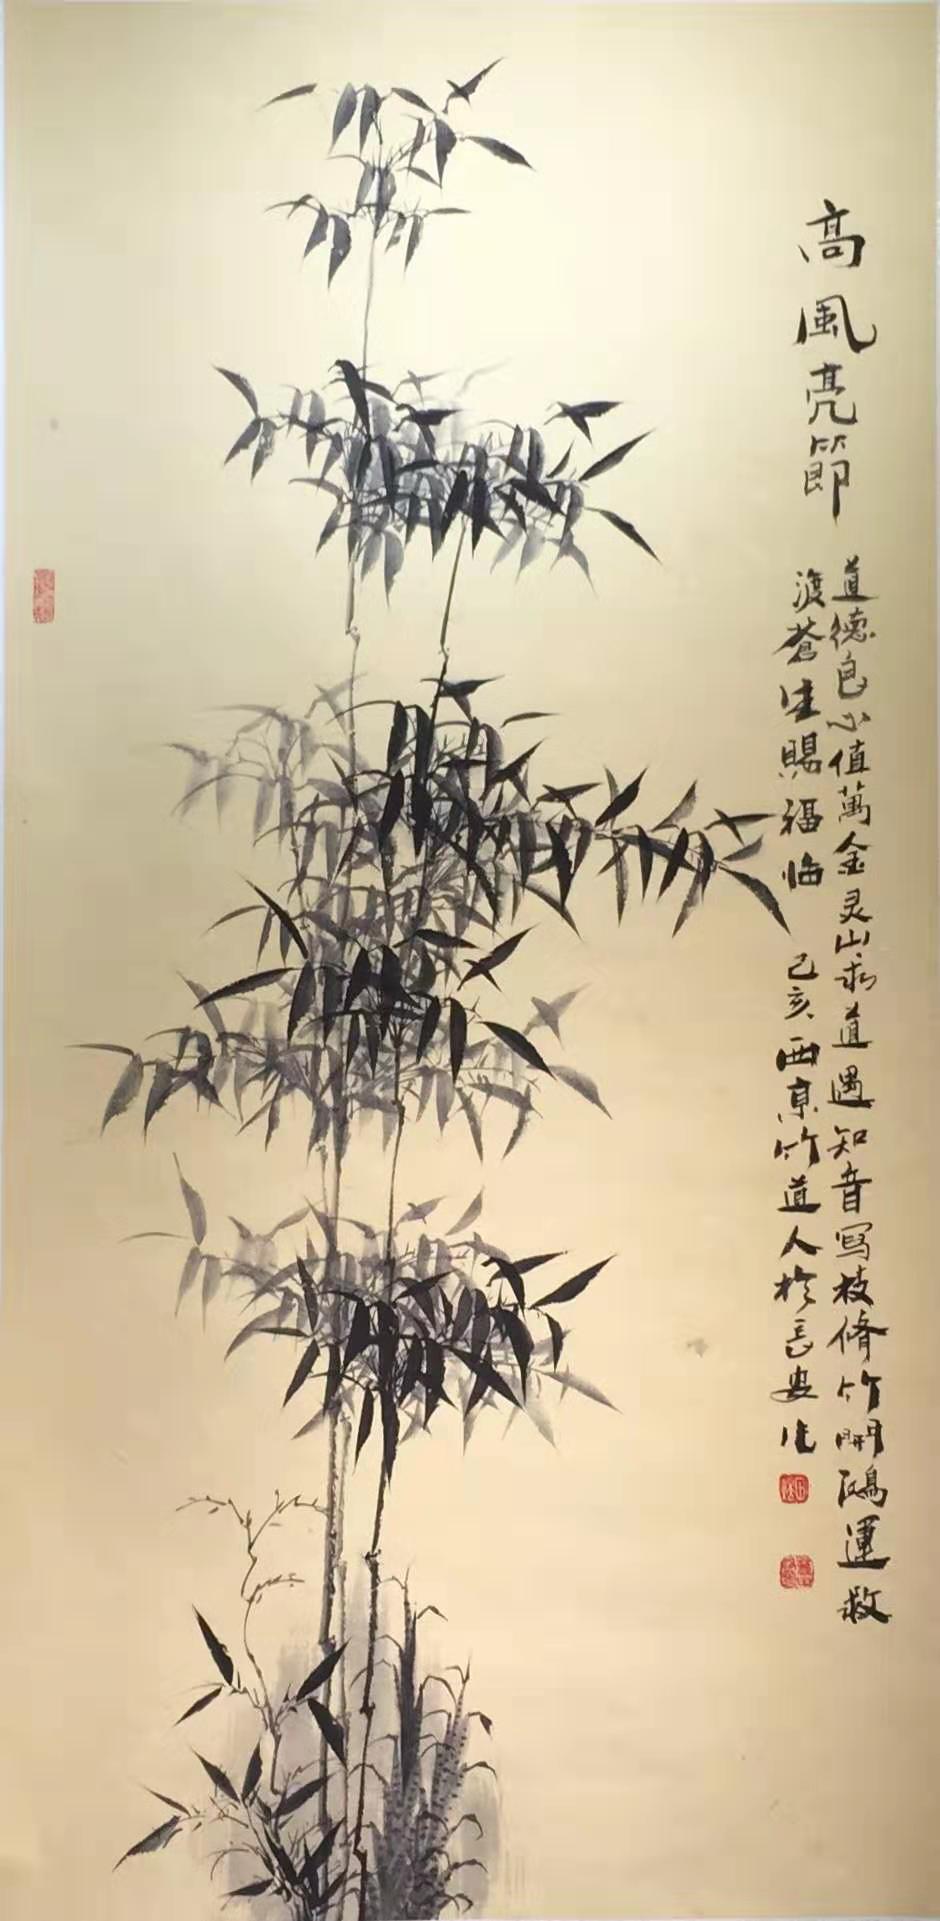 高風亮節
道德良心值萬金灵山求道遇知音寫枝脩竹開鴻運救
渡蒼生賜福临
己亥西京竹道人於長安作